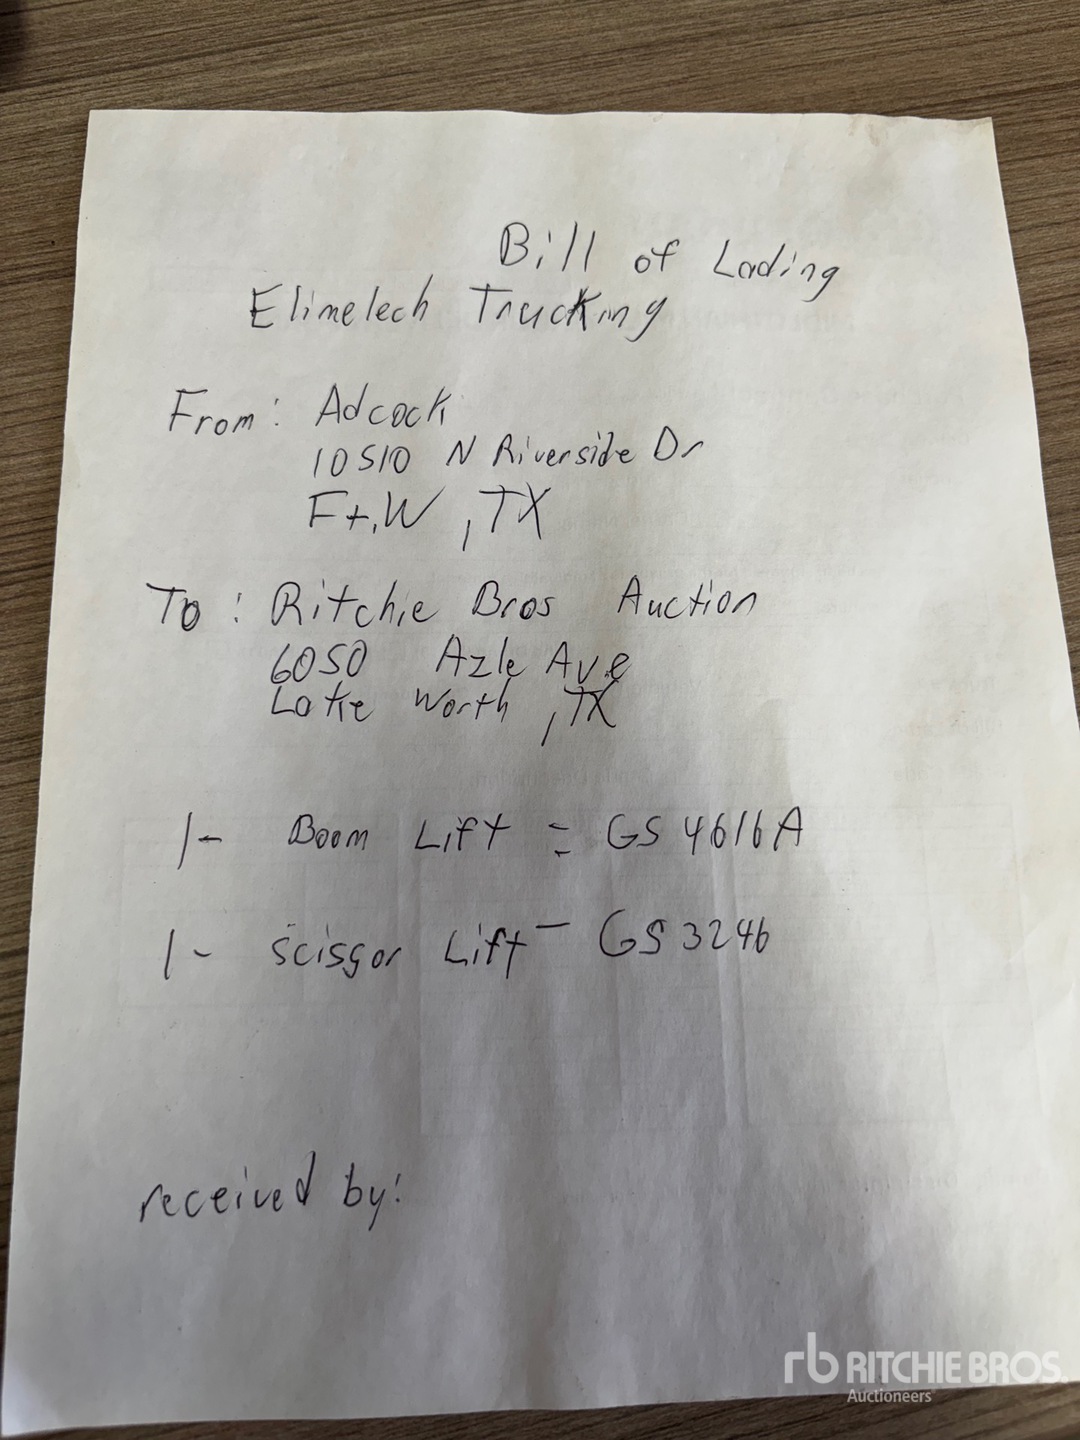 Bill of Lading
Elimelech Trucking
From: Adcock
10510 N Riverside Dr
Ft.W, TX
To: Ritchie Bros Auction
6050 Azle Ave
Lake Worth, TX
1- Boom Lift = GS4616A
1- Scissor Lift - GS3246
received by:
rb RITCHIE BROS.
Auctioneers